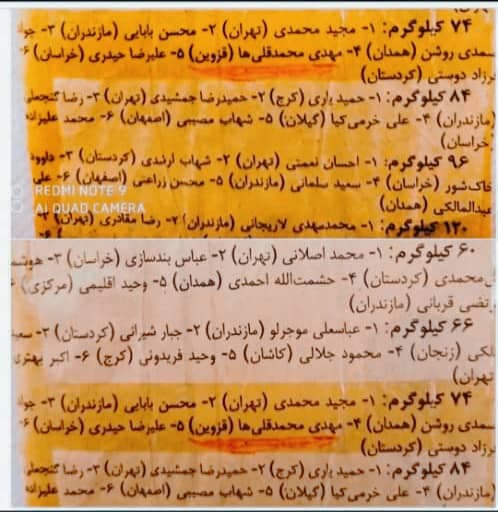 ۷۴ کیلوگرم: ۱- مجید محمدی (تهران) ۲- محسن بابایی (مازندران) ۳-
سمدی روشن (همدان) ۴- مهدی محمدقلی‌ها (قزوین) ۵- علیرضا حیدری (خراسان) ۶-
رزاد دوستی (کردستان)
۸۴ کیلوگرم: ۱- حمید یاری (کرج) ۲- حمیدرضا جمشیدی (تهران) ۳- رضا گنجعلی
(مازندران) ۴- علی خرمی‌کیا (گیلان) ۵- شهاب مصیبی (اصفهان) ۶- محمد علیزاده
خراسان)
۹۶ کیلوگرم: ۱- احسان نعمتی (تهران) ۲- شهاب ارندی (کردستان) ۳- داوود
خاک‌شور (خراسان) ۴- سعید سلمانی (مازندران) ۵- محسن زراعتی (اصفهان) ۶- علی
عبدالمالکی (همدان)
REDMI NOTE 9
AI QUAD CAMERA
۱۲۰ کیلوگرم: ۱- محمدمهدی لاریجانی (مازندران) ۲- رضا مقادری (تهران)
۶۰ کیلوگرم: ۱- محمد اصلانی (تهران) ۲- عباس بندسازی (خراسان) ۳-
محمدی (کردستان) ۴- حشمت‌الله احمدی (همدان) ۵- وحید اقلیمی (مرکزی)
تضی قربانی (مازندران)
۶۶ کیلوگرم: ۱- عباسعلی موجرلو (مازندران) ۲- جبار شیرانی (کردستان) ۳- سعید
لکی (زنجان) ۴- محمود جلالی (کاشان) ۵- وحید فریدونی (کرج) ۶- اکبر بهتری
تهران)
۷۴ کیلوگرم: ۱- مجید محمدی (تهران) ۲- محسن بابایی (مازندران) ۳-
سمدی روشن (همدان) ۴- مهدی محمدقلی‌ها (قزوین) ۵- علیرضا حیدری (خراسان) ۶-
رزاد دوستی (کردستان)
۸۴ کیلوگرم: ۱- حمید یاری (کرج) ۲- حمیدرضا جمشیدی (تهران) ۳- رضا گنجعلی
(مازندران) ۴- علی خرمی‌کیا (گیلان) ۵- شهاب مصیبی (اصفهان) ۶- محمد علیزاده